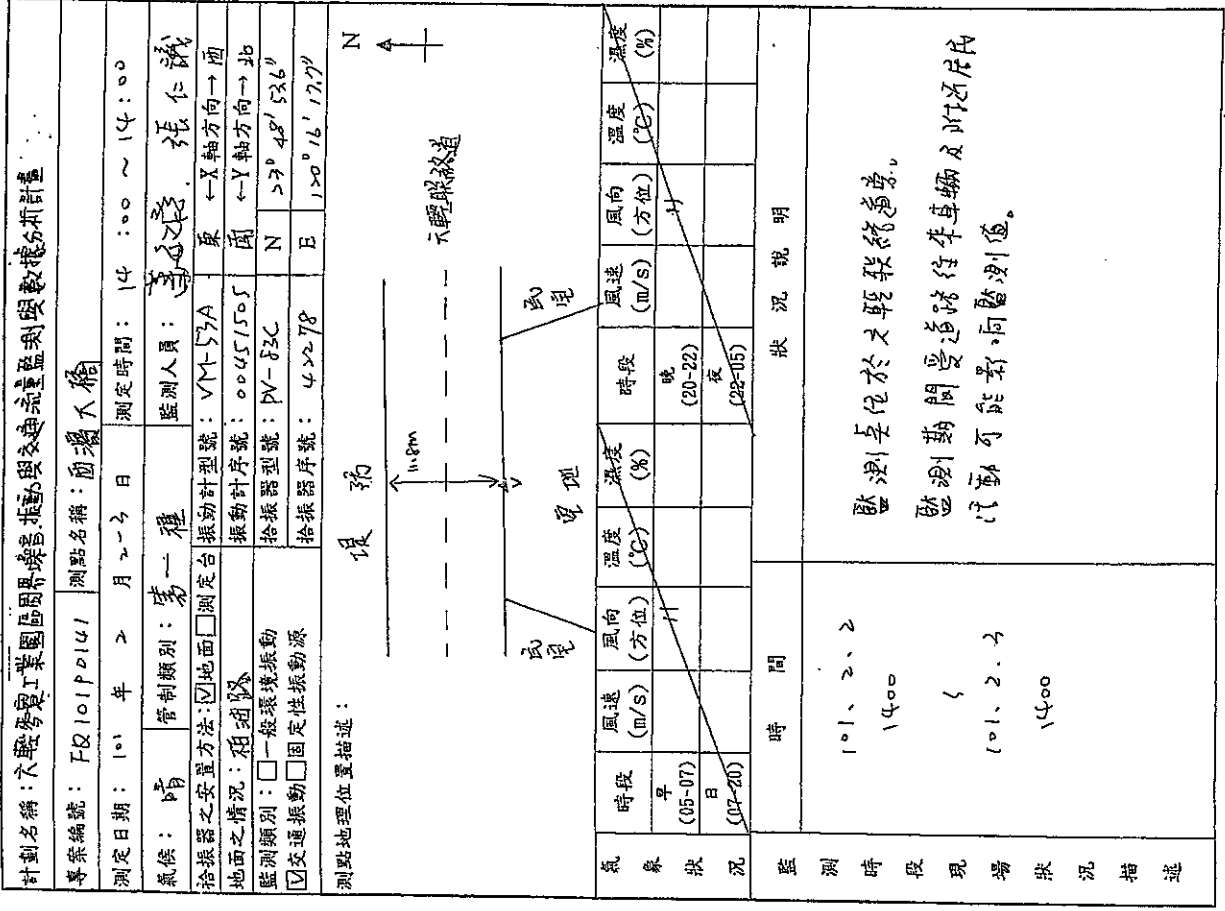 計劃名稱：六輕麥寮工業園區周界噪音振動與交通流量監測與數據分析計畫
專案編號：FQ101P0141 測點名稱：西濱大橋
測定日期：101 年 2 月 2-3 日 測定時間：14：00 ~ 14：00
氣候：晴 管制類別：第一種 監測人員： 張仁議
拾振器之安置方法：☑地面□測定台 振動計型號：VM-53A 東 ←X軸方向→ 西
地面之情況：柏油路 振動計序號：00451505 南 ←Y軸方向→ 北
監測類別：□一般環境振動 拾振器型號：PV-83C N 23° 48' 53.6"
☑交通振動□固定性振動源 拾振器序號：42278 E 120° 16' 17.7"
測點地理位置描述：
N
堤防
11.8m
六輕聯絡道
民宅
民宅
空地
氣象狀況
時段 風速(m/s) 風向(方位) 溫度(℃) 濕度(%) 時段 風速(m/s) 風向(方位) 溫度(℃) 濕度(%)
早(05-07) 晚(20-22)
日(07-20) 夜(22-05)
監測時段現場狀況描述
時間 狀況說明
101、2、2
1400
∫
101、2、3
1400
監測點位於六輕聯絡道旁。
監測期間受道路往來車輛及附近居民
活動可能影响監測值。